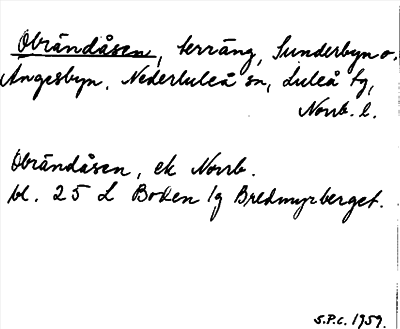 Obrändåsen, terräng, Sunderbyn o.
Ängesbyn, Nederluleå sn, Luleå tg,
Norrb. l.
Obrändåsen, ek Norrb.
bl. 25 L Boden 1g Bredmyrberget.
S.P.C. 1959.